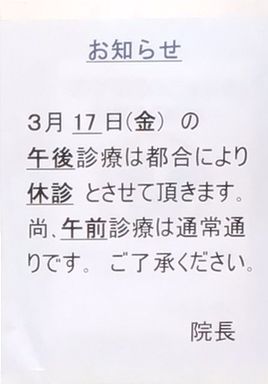 お知らせ
3月17日(金) の
午後診療は都合により
休診とさせて頂きます。
尚、午前診療は通常通
りです。 ご了承ください。
院長